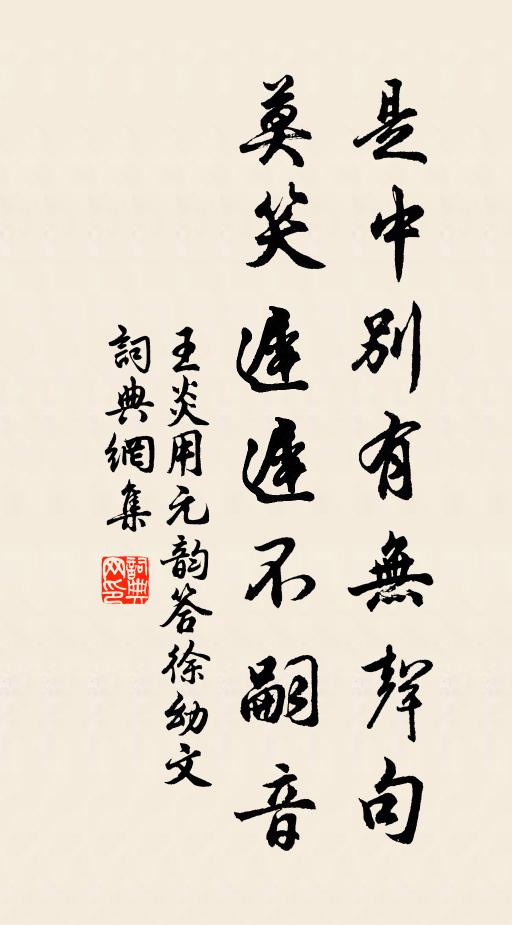 是中别有無聲句
莫笑遲遲不嗣音
王炎用元韵答徐幼文
詞典網集
詞典网印